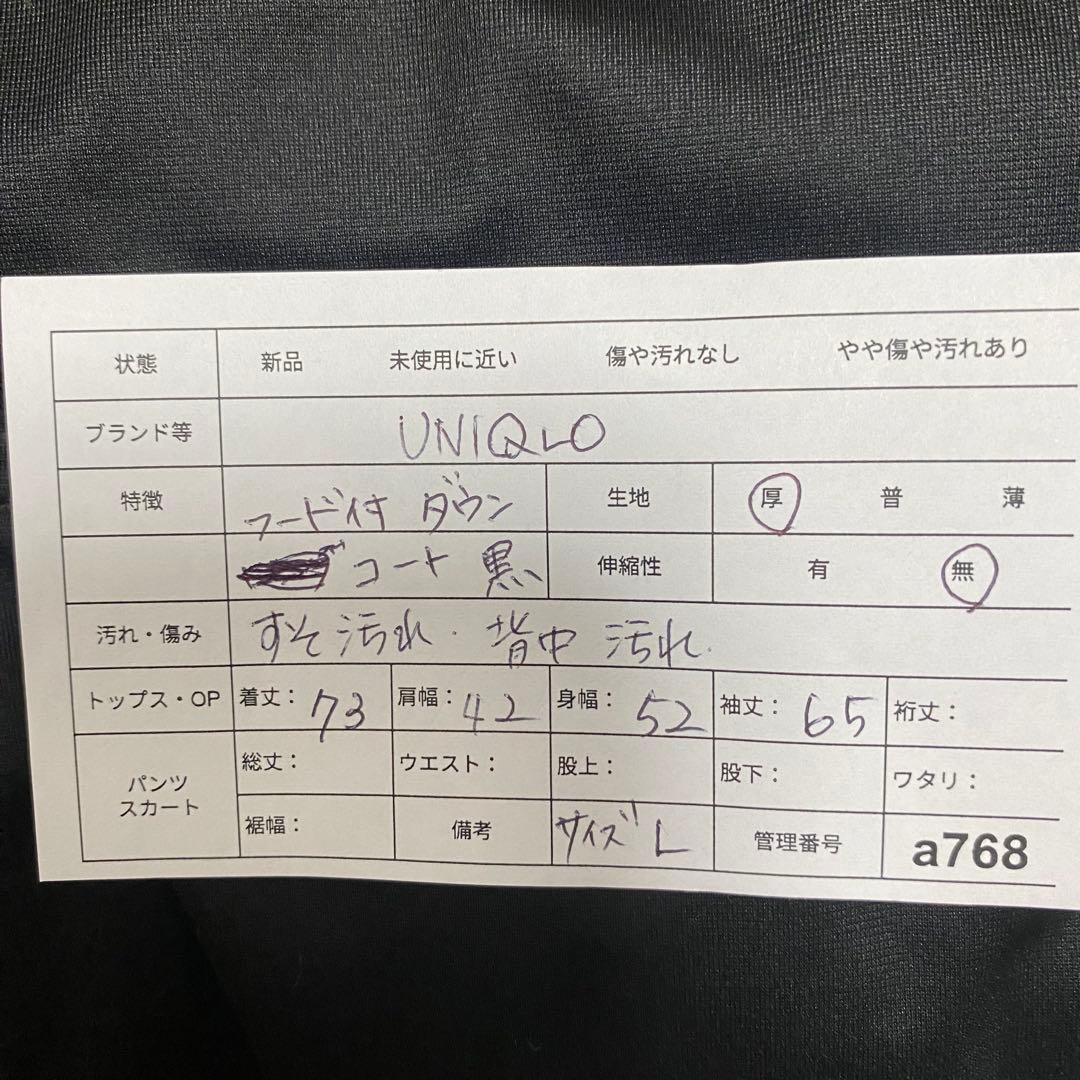 状態 新品 未使用に近い 傷や汚れなし やや傷や汚れあり
ブランド等 UNIQLO
特徴 フード付 ダウン 生地 厚 普 薄
コート 黒 伸縮性 有 無
汚れ・傷み すそ汚れ. 背中 汚れ.
トップス・OP 着丈: 73 肩幅: 42 身幅: 52 袖丈: 65 裄丈:
パンツ スカート 総丈: ウエスト: 股上: 股下: ワタリ:
裾幅: 備考 サイズ L 管理番号 a768